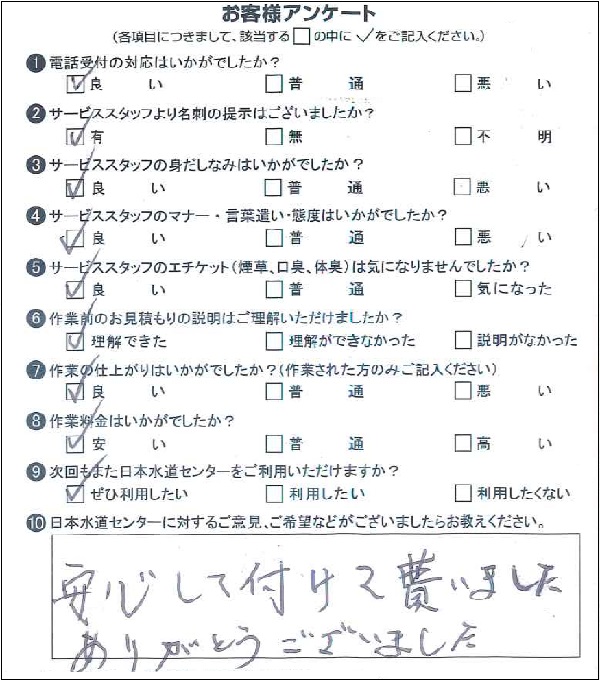 お客様アンケート
(各項目につきまして、該当する□の中に✓をご記入ください。)
❶電話受付の対応はいかがでしたか？
☑良い □普通 □悪い
❷サービススタッフより名刺の提示はございましたか？
☑有 □無 □不明
❸サービススタッフの身だしなみはいかがでしたか？
☑良い □普通 □悪い
❹サービススタッフのマナー・言葉遣い・態度はいかがでしたか？
☑良い □普通 □悪い
❺サービススタッフのエチケット(煙草、口臭、体臭)は気になりませんでしたか？
☑良い □普通 □気になった
❻作業前のお見積もりの説明はご理解いただけましたか？
☑理解できた □理解ができなかった □説明がなかった
❼作業の仕上がりはいかがでしたか？(作業された方のみご記入ください)
☑良い □普通 □悪い
❽作業料金はいかがでしたか？
☑安い □普通 □高い
❾次回もまた日本水道センターをご利用いただけますか？
☑ぜひ利用したい □利用したい □利用したくない
❿日本水道センターに対するご意見、ご希望などがございましたらお教えください。
安心して付けて貰いました
ありがとうございました